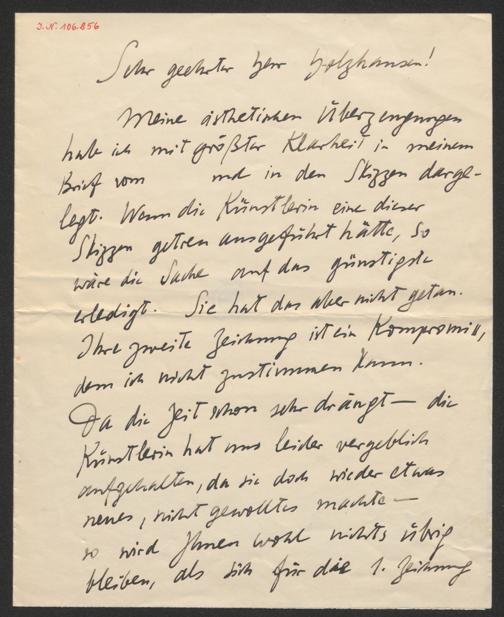 J.N. 106.856
Sehr geehrter Herr Holzhausen!
Meine ästhetischen Überzeugungen
habe ich mit größter Klarheit in meinem
Brief vom und in den Skizzen darge-
legt. Wenn die Künstlerin eine dieser
Skizzen getreu ausgeführt hätte, so
wäre die Sache auf das günstigste
erledigt. Sie hat das aber nicht getan.
Ihre zweite Zeichnung ist ein Kompromiß,
dem ich nicht zustimmen kann.
Da die Zeit schon sehr drängt — die
Künstlerin hat uns leider vergeblich
aufgehalten, da sie doch wieder etwas
neues, nicht gewolltes machte —
so wird Ihnen wohl nichts übrig
bleiben, als sich für die 1. Zeichnung